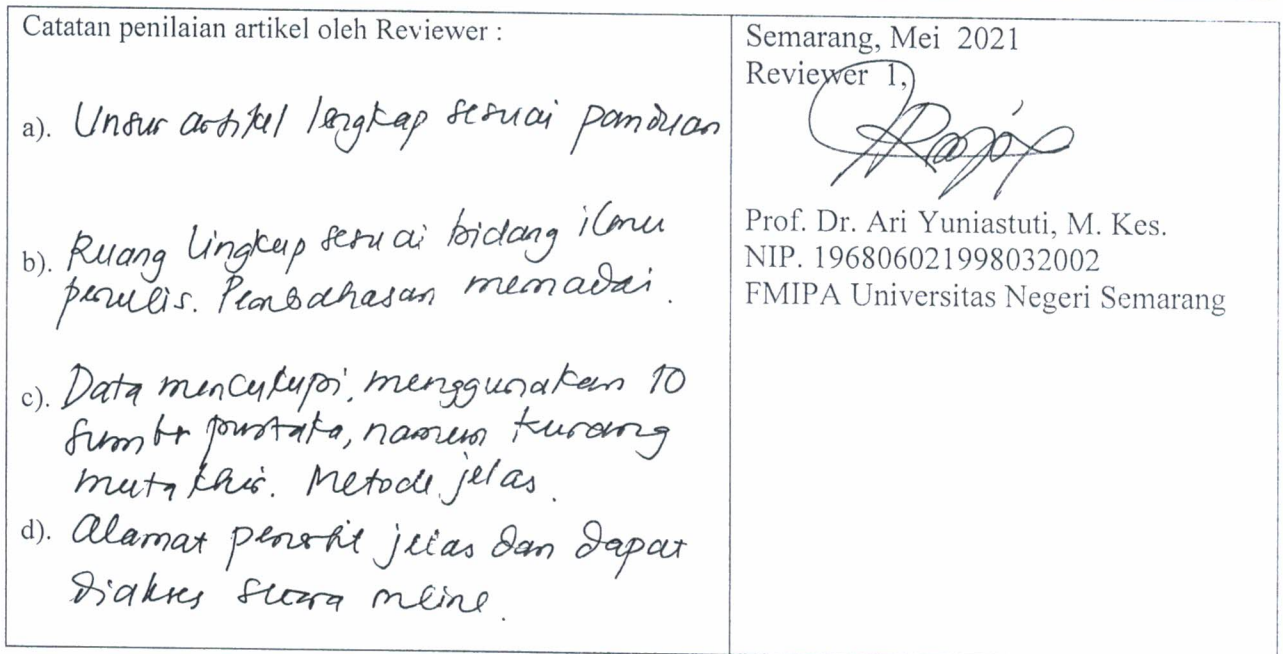 Catatan penilaian artikel oleh Reviewer :
a). Unsur artikel lengkap sesuai panduan
b). Ruang lingkup sesuai bidang ilmu
penulis. Pembahasan memadai.
c). Data mencukupi, menggunakan 10
sumber pustaka, namun kurang
mutakhir. Metode jelas.
d). Alamat penerbit jelas dan dapat
diakses secara online.
Semarang, Mei 2021
Reviewer 1,
Prof. Dr. Ari Yuniastuti, M. Kes.
NIP. 196806021998032002
FMIPA Universitas Negeri Semarang